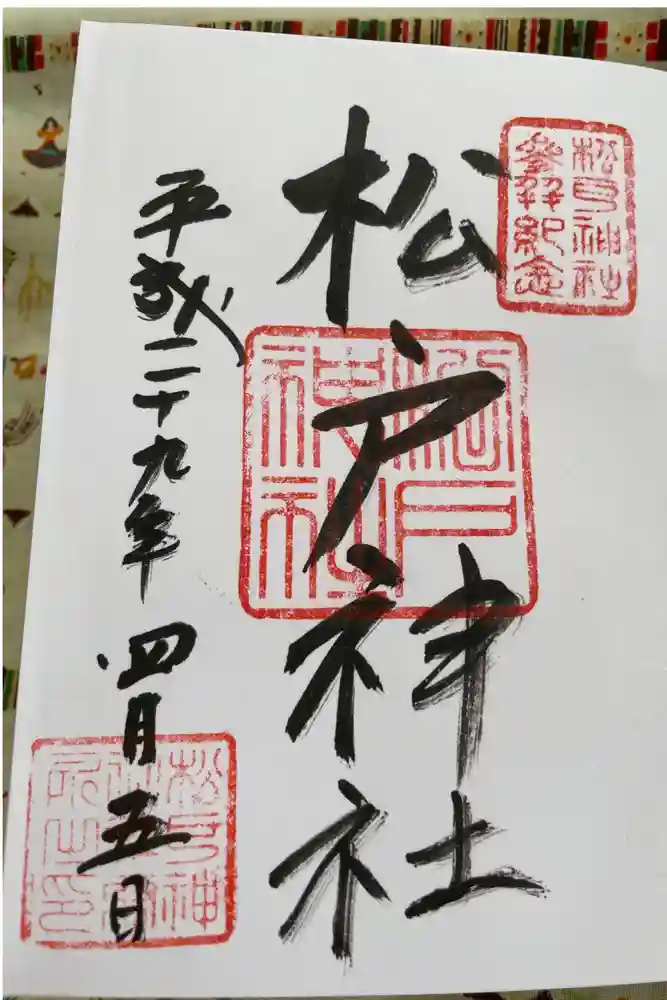 松戸神社
参拝紀念
松戸神社
松戸神社
平成二十九年四月五日
松戸神
社宮
司之印